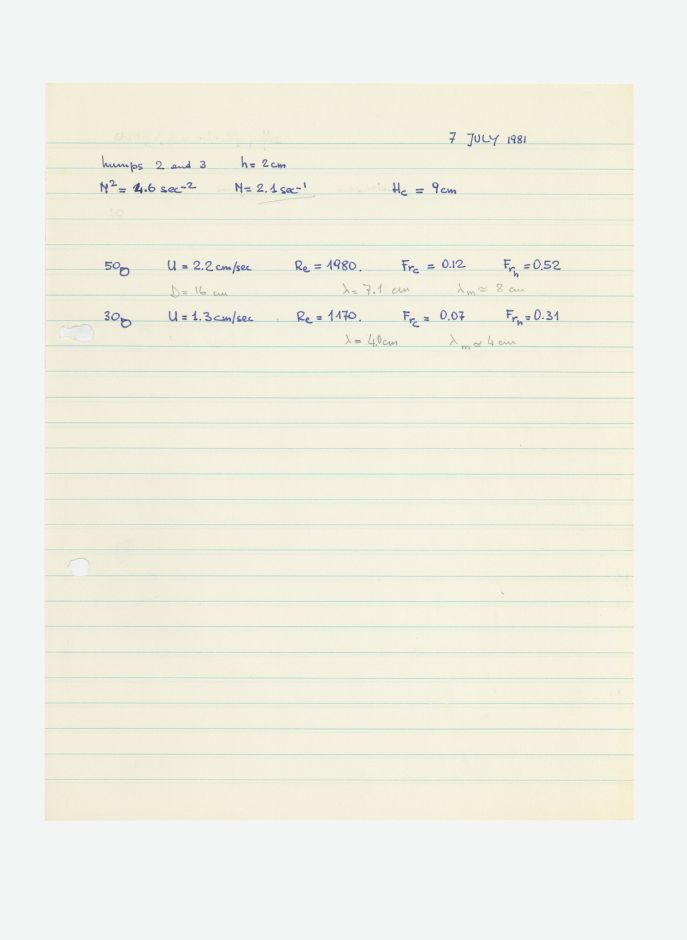 7 JULY 1981
humps 2 and 3 h = 2cm
N² = 4.6 sec⁻² N = 2.1 sec⁻¹ Hc = 9cm
50g U = 2.2 cm/sec Re = 1980. Frc = 0.12 Frh = 0.52
D = 16 cm λ = 7.1 cm λm ≃ 8 cm
30g U = 1.3 cm/sec Re = 1170. Frc = 0.07 Frh = 0.31
λ = 4.0cm λm ≃ 4 cm